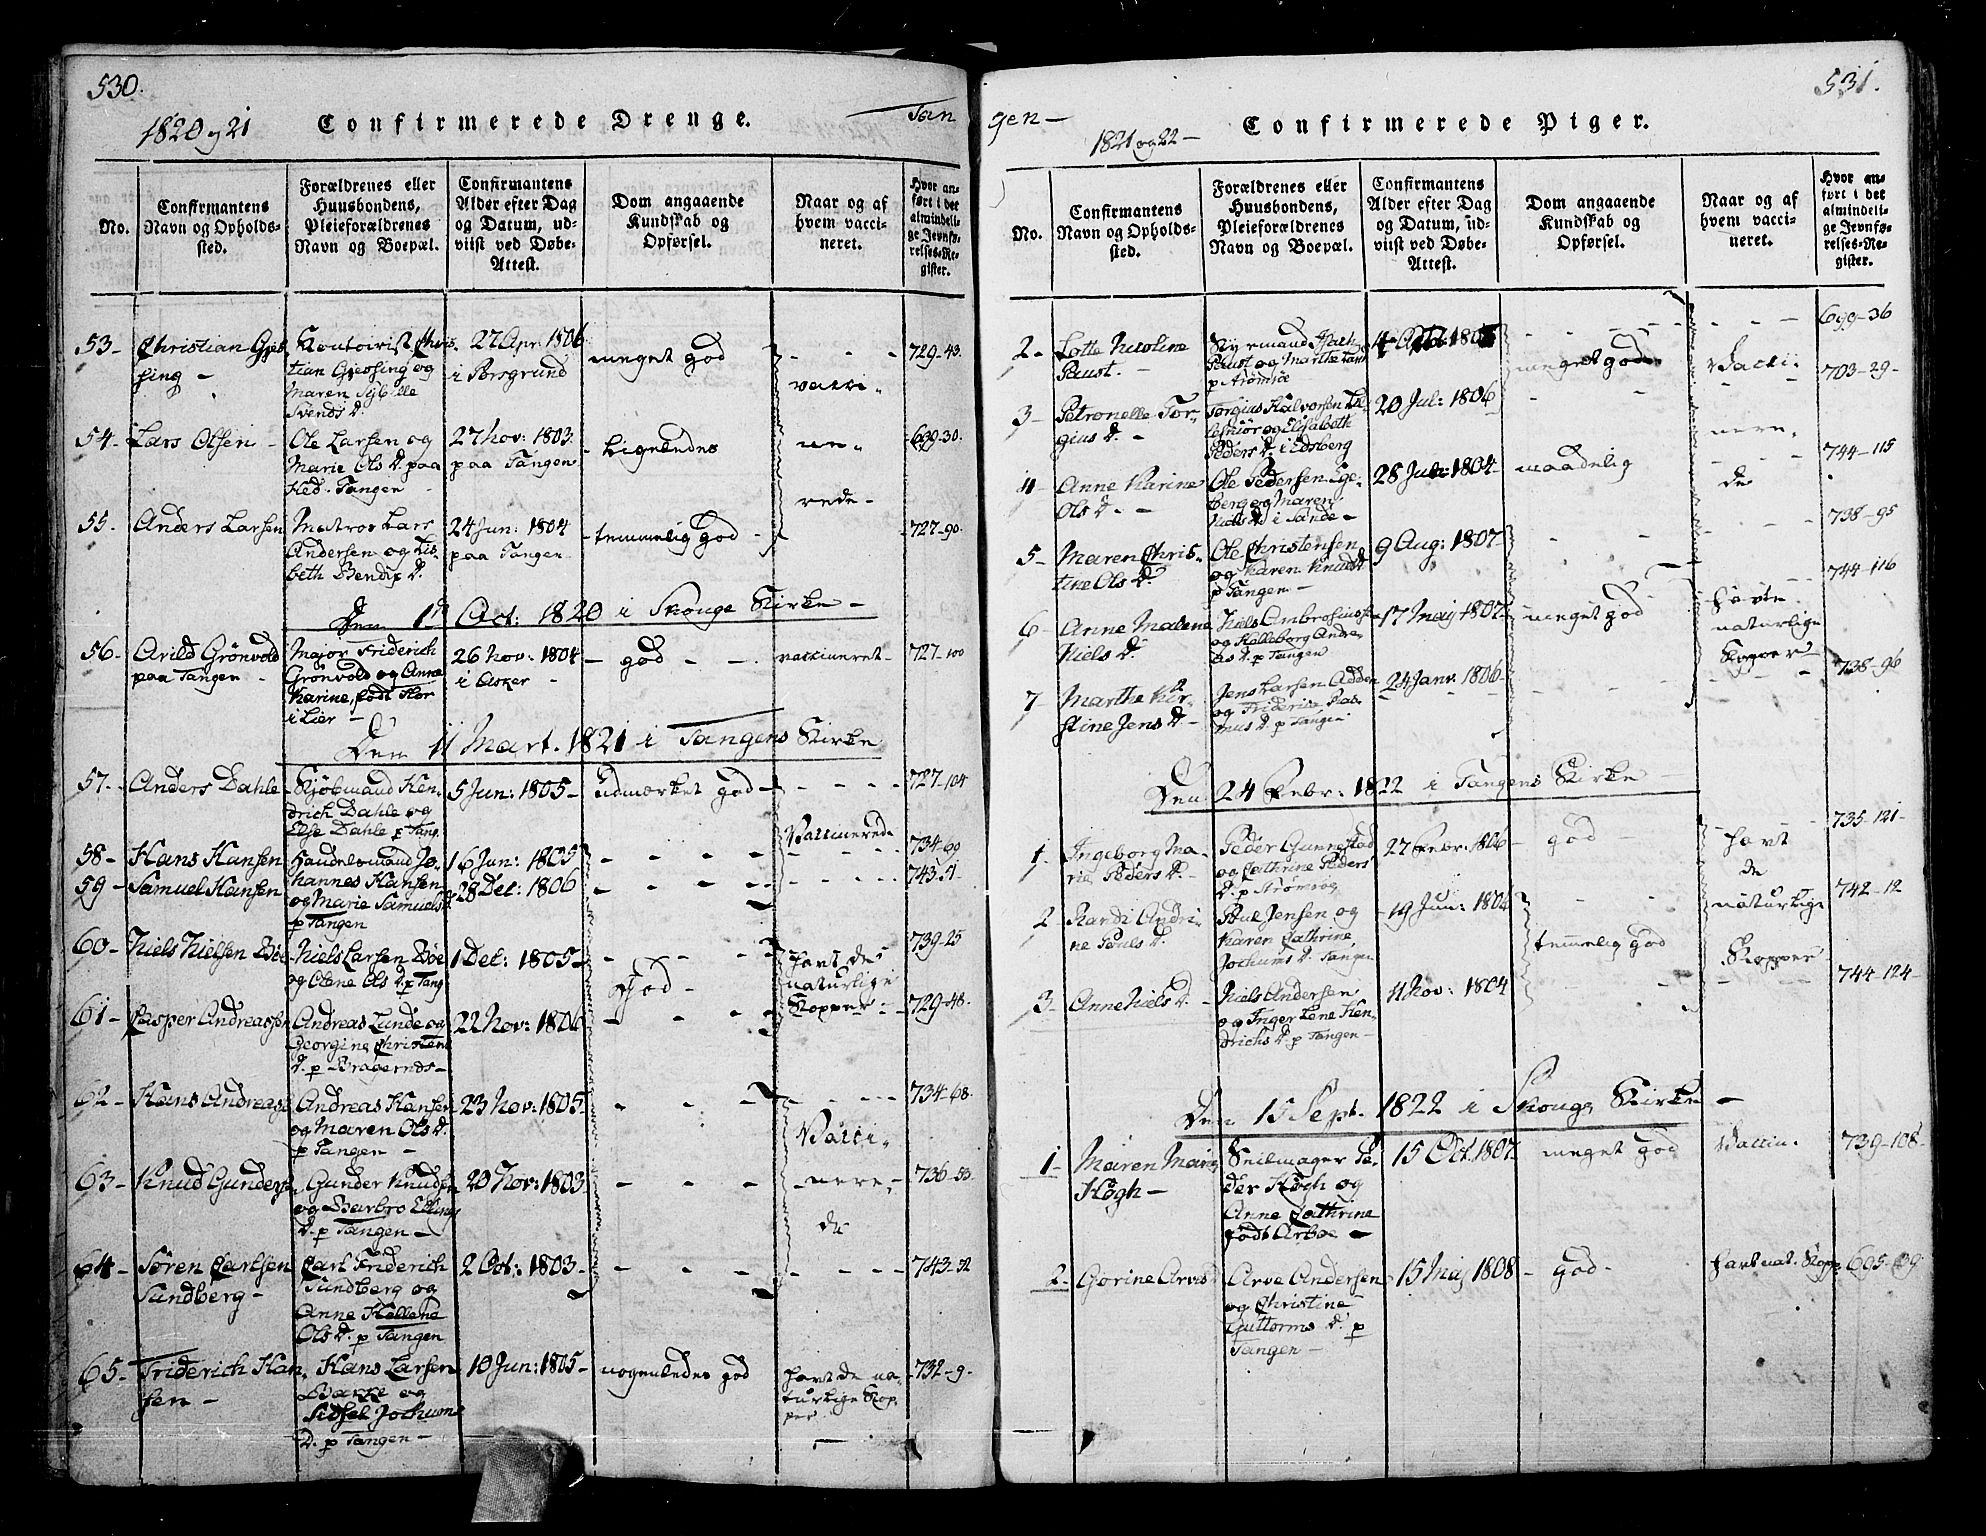 530.
1820 og 21 Confirmerede Drenge. Tan
No.
Confirmantens
Navn og Opholds-
sted.
Forældrenes eller
Huusbondens,
Pleieforældrenes
Navn og Boepæl.
Confirmantens
Alder efter Dag
og Datum, ud-
viist ved Døbe-
Attest.
Dom angaaende
Kundskab og
Opførsel.
Naar og af
hvem vacci-
neret.
Hvor an-
ført i det
almindeli-
ge Jevnfø-
relses-Re-
gister.
53- Christian
sing -
tian Giessing og
Maren Sybille
Svends D.
27 Apr. 1806
i Porsgrund
meget god
vacci-
729-43.
54- Lars Olsen -
Ole Larsen og
Marie Ols D. paa
Tangen -
27 Nov: 1803.
paa Tangen
Ligeledes
ne-
rede-
639-30.
55. Anders Larsen
Matros Lars
Andersen og Lis-
beth Bendix D.
24 Jun: 1804
paa Tangen
temmelig god -
727-90.
Den 1 Oct: 1820 i Skouge Kirke -
56- Arild Grönvold
paa Tangen -
Major Friderich
Grönvold og Anne
Karine, födt
i Lier -
26 Nov: 1804
i Asker -
- god - -
vaccineret-
727-100
Den 11 Mart. 1821 i Tangens Kirke
57- Anders Dahle
Kjöbmand Hen-
drich Dahle og
Else Dahle p Tang.
5 Jun: 1805-
udmerket god
Vaccinerede
727-104
58- Hans Hansen
59- Samuel Hansen
Handelsmand Jo-
hannes Hansen
og Marie Samuels D
p Tangen
16 Jun: 1805
28 Dec: 1806
734-69
743-51
60- Niels Nielsen Böe
Niels Larsen Böe
og Olene Ols D. p Tang
1 Dec: 1805-
God -
havt de
naturlige
Kopper
739-25
61- Casper Andreassen
Andreas Lunde og
Georgine Christens
D. p Bragernæs-
22 Nov: 1806
729-48.
62- Hans Andreas
Andreas Hansen
og Maren Ols D.
p Tangen -
23 Nov: 1805-
Vacci-
734-68.
63- Knud Gunders
Gunder Knudsen
og Barbro Ellings
D. p Tangen -
20 Nov: 1803-
-nere-
de
736-53.
64- Sören Carlsen
Sundberg -
Carl Friderich
Sundberg og
Anne Hellene
Ols D. p Tangen
2 Oct: 1803-
743-52
65- Friderich Han
sen -
Hans Larsen
Bakke og
Sidsel Jochums
D. p Tangen -
10 Jun: 1805-
nogenledes god
havt de na-
turlige Kop-
per
732-9.
531.
gen-
1821 og 22- Confirmerede Piger.
No.
Confirmantens
Navn og Opholds-
sted.
Forældrenes eller
Huusbondens,
Pleieforældrenes
Navn og Boepæl.
Confirmantens
Alder efter Dag
og Datum, ud-
viist ved Døbe-
Attest.
Dom angaaende
Kundskab og
Opførsel.
Naar og af
hvem vacci-
neret.
Hvor an-
ført i det
almindeli-
ge Jevnfø-
relses-Re-
gister.
2- Lotte Nicoline
Paust. -
Paust og Marthe
p Strömsöe
meget god
Vacci-
699-36
3- Petronelle Tor-
gius D. -
Torgius Halvorsen
og Elisabeth
Peders D. i Edsberg
20 Jul: 1806
nere-
703-29-
4- Anne Karine
Ols D. -
Ole Pedersen Ege-
berg og Maren
Niels D. i Sande -
28 Jul: 1804
maadelig
de
744-115
5- Maren Chris-
tine Ols D.
Ole Christensen
og Karen Knuds D
p Tangen -
9 Aug: 1807-
738-95
6- Anne Malene
Niels D.
Niels Ambrosiussen
og Helleborg Andre-
as D. p Tangen
17 Maj 1807-
meget god
havte
naturlige
Kopper
744-116
7- Marthe Kir-
stine Jens D. -
Jens Larsen Adden
og Friderice Ras-
mus D. p Tangen
24 Janv. 1806-
738-96
Den 24 Febr: 1822 i Tangens Kirke
1- Ingeborg Ma-
rie Peders D. -
Peder Gunnestad
og Cathrine Peders
D. p Strömsöe
27 Febr: 1806
god -
havt
de
naturlige
Kopper
735-121-
2 Kardi Andri-
ne Pouls D.
Poul Jensen og
Karen Cathrine
Jochums D. Tangen
19 Jun: 1806
temmelig god
742-12
3- Anne Niels D. -
Niels Andersen
og Inger Lene Hen-
drichs D. p Tangen-
11 Nov: 1804
744-124-
Den 15 Sept. 1822 i Skouge Kirke -
1- Maren Marie
Högh -
Seilmager Pe-
der Högh og
Anne Cathrine
födt Arboe -
15 Oct. 1807
meget god
Vaccin.
739-108-
2- Gorine Arves
Arve Andersen
og Christine
Guttorms D. p
Tangen -
15 Maj 1808 -
god -
havt nat. Kopp.
695-39-